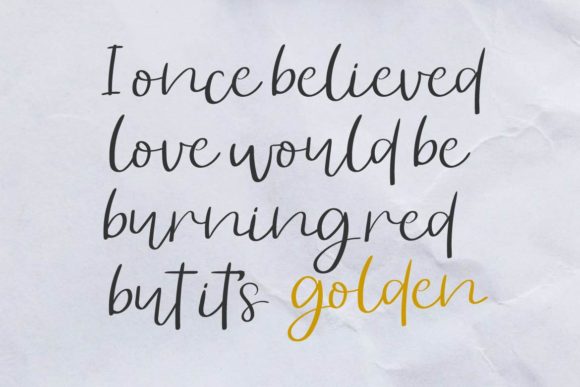 I once believed
love would be
burning red
but it's golden